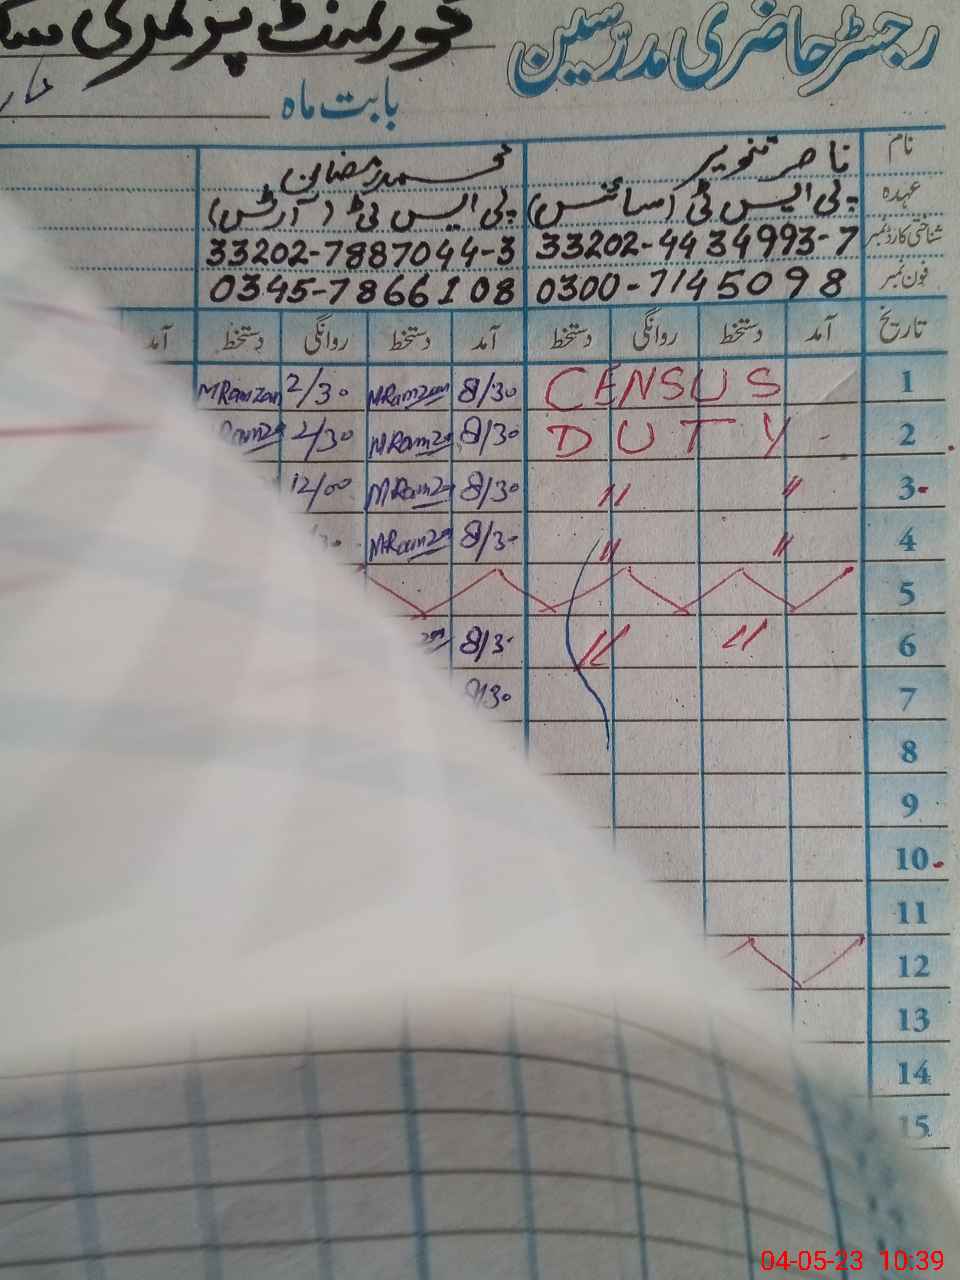 رجسٹر حاضری مدرّسین گورنمنٹ پرائمری
بابت ماہ
نام ناصر تنویر محمد رمضان
عہدہ پی ایس ٹی (سائنس) پی ایس ٹی (آرٹس)
شناختی کارڈ نمبر 33202-4434993-7 33202-7887044-3
فون نمبر 0300-7145098 0345-7866108
تاریخ آمد دستخط روانگی دستخط آمد دستخط روانگی دستخط آمد
1 CENSUS 8/30 MRamzan 2/30 MRamzan
2 DUTY 8/30 MRamzan 2/30
3 〃 〃 8/30 MRamzan 12/00
4 〃 〃 8/30 MRamzan
5
6 〃 〃 8/30
7 8/30
8
9
10
11
12
13
14
15
04-05-23 10:39